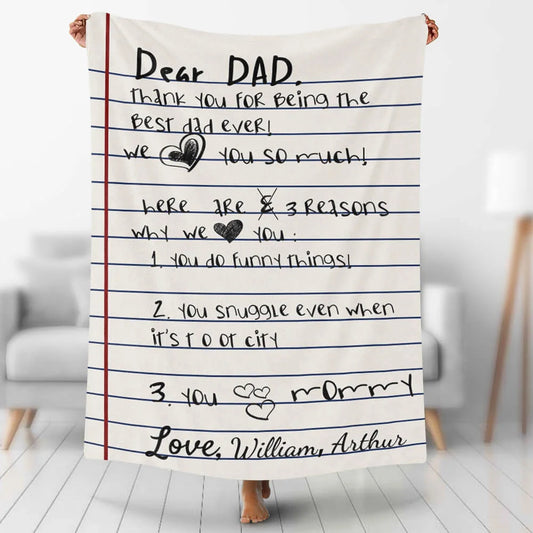 Dear DAD,
Thank you for Being the
Best dad ever!
we ♥ you so much!
here are 2 3 Reasons
why we ♥ you:
1. you do funny things!
2. you snuggle even when
it's T O OT city
3. you ♥ mommy
Love, William, Arthur